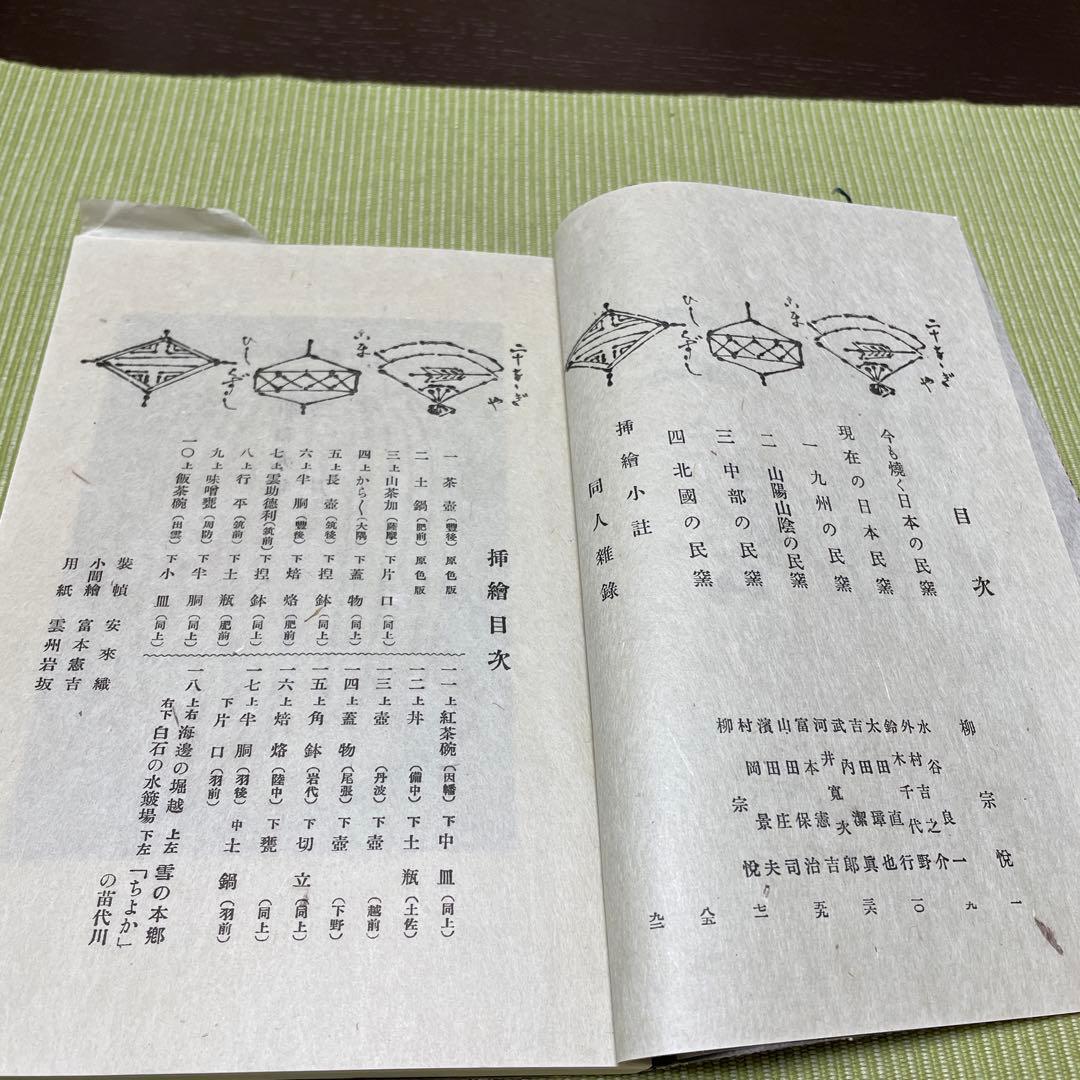 目次
今も燒く日本の民窯 柳宗悅 一
現在の日本民窯 九
一 九州の民窯 一〇
二 山陽山陰の民窯 三六
三 中部の民窯 五九
四 北國の民窯
挿繪小註 八五
同人雜錄 九二
水谷良一
外村吉之介
鈴木千代野
太田直行
吉田璋也
武內潔眞
河井寬次郎
富本憲吉
山田保治
濱田庄司
村岡景夫
柳宗悅
ひしくずし
挿繪目次
一 茶壺(豐後)原色版
二 土鍋(肥前)原色版
三 上 山茶加(薩摩)下 片口(同上)
四 上 からから(大隅)下 蓋物(同上)
五 上 長壺(筑後)下 捏鉢(同上)
六 上 半胴(豐後)下 焙烙(肥前)
七 上 雲助德利(筑前)下 捏鉢(同上)
八 上 行平(筑前)下 土瓶(肥前)
九 上 味噌甕(周防)下 半胴(同上)
一〇 上 飯茶碗(出雲)下 小皿(同上)
一一 上 紅茶碗(因幡)下 中皿(同上)
一二 上 丼(備中)下 土瓶(土佐)
一三 上 壺(丹波)下 壺(越前)
一四 上 蓋物(尾張)下 壺(下野)
一五 上 角鉢(岩代)下 切立(同上)
一六 上 焙烙(陸中)下 甕(同上)
一七 上 半胴(羽後)中 土鍋(羽前)
下 片口(羽前)
一八 上右 海邊の堀越 上左 雪の本鄕
右下 白石の水簸場 下左 「ちよか」の苗代川
裝幀 安來織
小間繪 富本憲吉
用紙 雲州岩坂